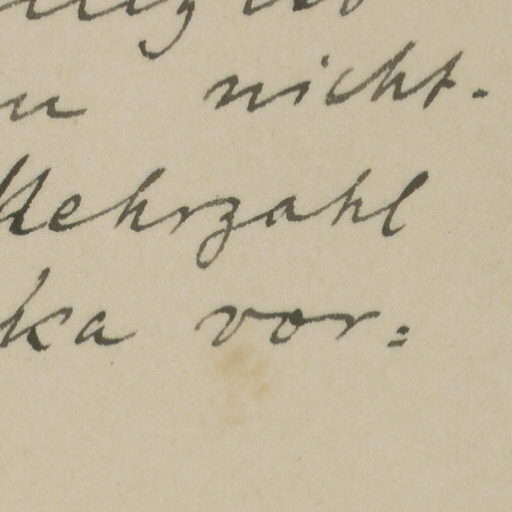 nicht.
Mehrzahl
ka vor=